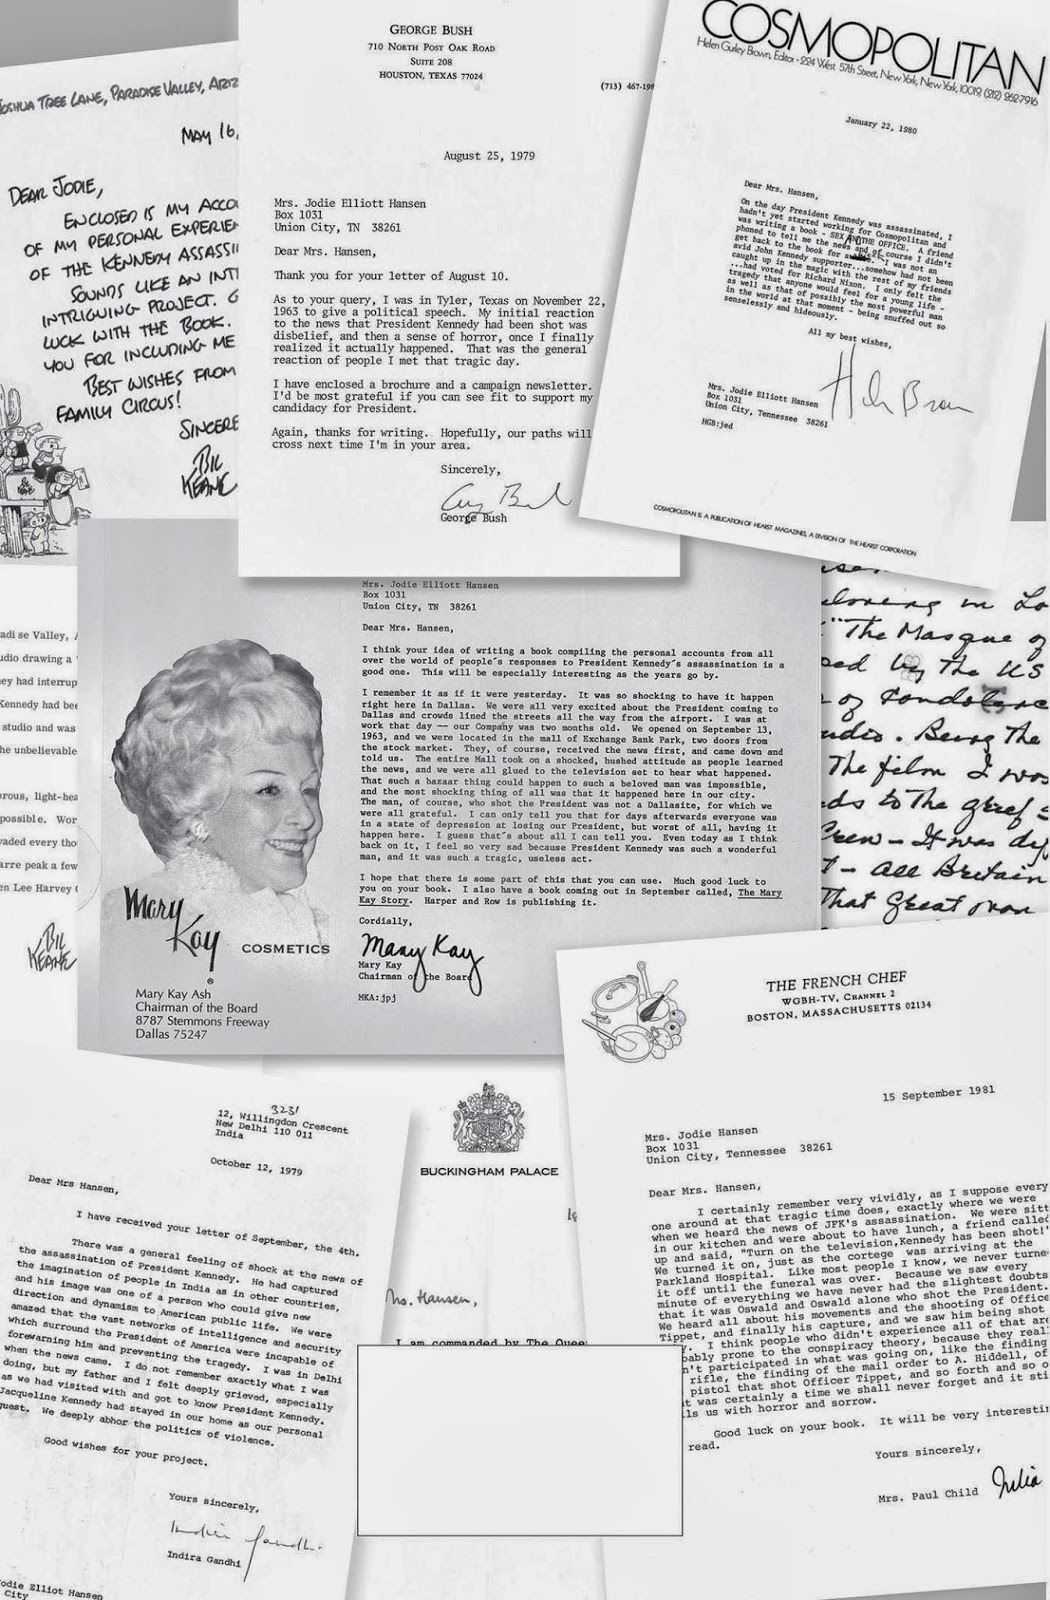 JOSHUA TREE LANE, PARADISE VALLEY, ARIZ
MAY 16,
DEAR JODIE,
ENCLOSED IS MY ACCO
OF MY PERSONAL EXPERIE
OF THE KENNEDY ASSASSI
SOUNDS LIKE AN INT
INTRIGUING PROJECT. G
LUCK WITH THE BOOK.
YOU FOR INCLUDING ME
BEST WISHES FROM
FAMILY CIRCUS!
SINCERE
BIL
KEANE
GEORGE BUSH
710 NORTH POST OAK ROAD
SUITE 208
HOUSTON, TEXAS 77024
(713) 467-198
August 25, 1979
Mrs. Jodie Elliott Hansen
Box 1031
Union City, TN 38261
Dear Mrs. Hansen,
Thank you for your letter of August 10.
As to your query, I was in Tyler, Texas on November 22,
1963 to give a political speech. My initial reaction
to the news that President Kennedy had been shot was
disbelief, and then a sense of horror, once I finally
realized it actually happened. That was the general
reaction of people I met that tragic day.
I have enclosed a brochure and a campaign newsletter.
I'd be most grateful if you can see fit to support my
candidacy for President.
Again, thanks for writing. Hopefully, our paths will
cross next time I'm in your area.
Sincerely,
George Bush
COSMOPOLITAN
Helen Gurley Brown, Editor • 224 West 57th Street, New York, New York, 10019, (212) 262-7916
January 22, 1980
Dear Mrs. Hansen,
On the day President Kennedy was assassinated, I
hadn't yet started working for Cosmopolitan and
was writing a book - SEX AND THE OFFICE. A friend
phoned to tell me the news and of course I didn't
get back to the book for I was not an
avid John Kennedy supporter...somehow had not been
caught up in the magic with the rest of my friends
...had voted for Richard Nixon. I only felt the
tragedy that anyone would feel for a young life -
as well as that of possibly the most powerful man
in the world at that moment - being snuffed out so
senselessly and hideously.
All my best wishes,
Mrs. Jodie Elliott Hansen
Box 1031
Union City, Tennessee 38261
HGB:jed
COSMOPOLITAN IS A PUBLICATION OF HEARST MAGAZINES, A DIVISION OF THE HEARST CORPORATION
adise Valley, A
udio drawing a
ey had interrup
Kennedy had bee
studio and was
he unbelievable
rous, light-hea
possible. Wor
vaded every tho
arre peak a few
en Lee Harvey O
BIL
KEANE
Mrs. Jodie Elliott Hansen
Box 1031
Union City, TN 38261
Dear Mrs. Hansen,
I think your idea of writing a book compiling the personal accounts from all
over the world of people's responses to President Kennedy's assassination is a
good one. This will be especially interesting as the years go by.
I remember it as if it were yesterday. It was so shocking to have it happen
right here in Dallas. We were all very excited about the President coming to
Dallas and crowds lined the streets all the way from the airport. I was at
work that day -- our Company was two months old. We opened on September 13,
1963, and we were located in the mall of Exchange Bank Park, two doors from
the stock market. They, of course, received the news first, and came down and
told us. The entire Mall took on a shocked, hushed attitude as people learned
the news, and we were all glued to the television set to hear what happened.
That such a bazaar thing could happen to such a beloved man was impossible,
and the most shocking thing of all was that it happened here in our city.
The man, of course, who shot the President was not a Dallasite, for which we
were all grateful. I can only tell you that for days afterwards everyone was
in a state of depression at losing our President, but worst of all, having it
happen here. I guess that's about all I can tell you. Even today as I think
back on it, I feel so very sad because President Kennedy was such a wonderful
man, and it was such a tragic, useless act.
I hope that there is some part of this that you can use. Much good luck to
you on your book. I also have a book coming out in September called, The Mary
Kay Story. Harper and Row is publishing it.
Cordially,
Mary Kay
Mary Kay
Chairman of the Board
MKA:jpj
Mary Kay COSMETICS
®
Mary Kay Ash
Chairman of the Board
8787 Stemmons Freeway
Dallas 75247
in Lo
"The Masque of
by the US
of Condolence
udio. Being the
The film I was
ds to the grief
Crew - It was
- all Britain
That Great man
THE FRENCH CHEF
WGBH-TV, CHANNEL 2
BOSTON, MASSACHUSETTS 02134
15 September 1981
Mrs. Jodie Hansen
Box 1031
Union City, Tennessee 38261
Dear Mrs. Hansen,
I certainly remember very vividly, as I suppose every
one around at that tragic time does, exactly where we were
when we heard the news of JFK's assassination. We were sitt
in our kitchen and were about to have lunch, a friend called
up and said, "Turn on the television,Kennedy has been shot!"
We turned it on, just as the cortege was arriving at the
Parkland Hospital. Like most people I know, we never turne
it off until the funeral was over. Because we saw every
minute of everything we have never had the slightest doubts
that it was Oswald and Oswald alone who shot the President.
We heard all about his movements and the shooting of Office
Tippet, and finally his capture, and we saw him being shot
y. I think people who didn't experience all of that are
bably prone to the conspiracy theory, because they real
n't participated in what was going on, like the finding
rifle, the finding of the mail order to A. Hiddell, of
pistol that shot Officer Tippet, and so forth and so o
t was certainly a time we shall never forget and it sti
ls us with horror and sorrow.
Good luck on your book. It will be very interestin
read.
Yours sincerely,
Mrs. Paul Child
Julia
3231
12, Willingdon Crescent
New Delhi 110 011
India
October 12, 1979
Dear Mrs Hansen,
I have received your letter of September, the 4th.
There was a general feeling of shock at the news of
the assassination of President Kennedy. He had captured
the imagination of people in India as in other countries,
and his image was one of a person who could give new
direction and dynamism to American public life. We were
amazed that the vast networks of intelligence and security
which surround the President of America were incapable of
forewarning him and preventing the tragedy. I was in Delhi
when the news came. I do not remember exactly what I was
doing, but my father and I felt deeply grieved, especially
as we had visited with and got to know President Kennedy.
Jacqueline Kennedy had stayed in our home as our personal
guest. We deeply abhor the politics of violence.
Good wishes for your project.
Yours sincerely,
Indira Gandhi
Indira Gandhi
odie Elliot Hansen
City
BUCKINGHAM PALACE
Mrs. Hansen,
I am commanded by The Quee